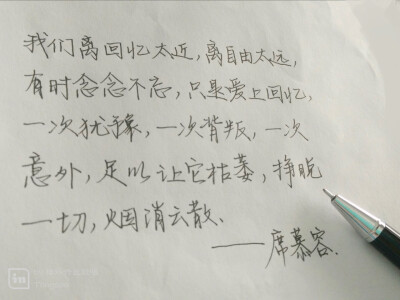 我们离回忆太近，离自由太远，
有时念念不忘，只是爱上回忆，
一次犹豫，一次背叛，一次
意外，足以让它枯萎，挣脱
一切，烟消云散.
——席慕容.
in